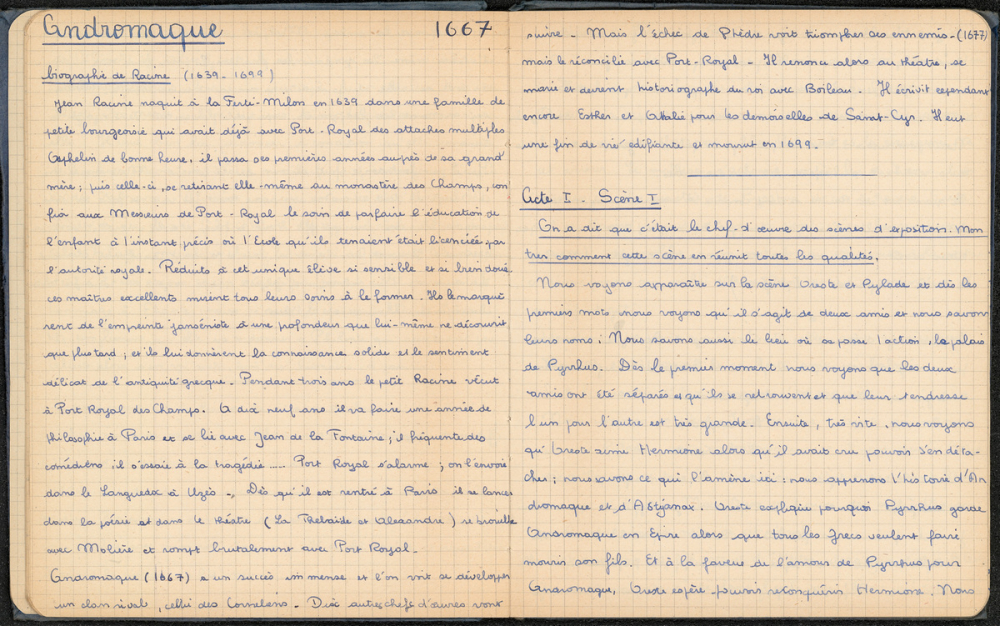 Andromaque 1667
biographie de Racine (1639 - 1699)
Jean Racine naquit à la Ferté-Milon en 1639 dans une famille de
petite bourgeoisie qui avait déjà avec Port-Royal des attaches multiples
Orphelin de bonne heure, il passa ses premières années auprès de sa grand
mère ; puis celle-ci, se retirant elle-même au monastère des Champs, con
fia aux Messieurs de Port-Royal le soin de parfaire l'éducation de
l'enfant à l'instant précis où l'Ecole qu'ils tenaient était licenciée par
l'autorité royale. Réduits à cet unique élève si sensible et si bien doué,
ces maîtres excellents mirent tous leurs soins à le former. Ils le marquè
rent de l'empreinte janséniste à une profondeur que lui-même ne découvrit
que plus tard ; et ils lui donnèrent la connaissance solide et le sentiment
délicat de l'antiquité grecque. Pendant trois ans le petit Racine vécut
à Port Royal des Champs. A dix neuf ans il va faire une année de
philosophie à Paris et se lie avec Jean de la Fontaine ; il fréquente des
comédiens il s'essaie à la tragédie ..... Port Royal s'alarme ; on l'envoie
dans le Languedoc à Uzès -, Dès qu'il est rentré à Paris il se lance
dans la poésie et dans le théâtre (La Thébaïde et Alexandre) se brouille
avec Molière et rompt brutalement avec Port Royal.
Andromaque (1667) a un succès immense et l'on voit se développer
un clan rival, celui des Corneliens. Dix autres chefs d'œuvres vont
suivre - Mais l'échec de Phèdre voit triompher ses ennemis - (1677)
mais le réconcilie avec Port-Royal - Il renonce alors au théâtre, se
marie et devient historiographe du roi avec Boileau. Il écrivit cependant
encore Esther et Athalie pour les demoiselles de Saint-Cyr. Il eut
une fin de vie édifiante et mourut en 1699.
Acte I - Scène I
On a dit que c'était le chef-d'œuvre des scènes d'exposition. Mon
trer comment cette scène en réunit toutes les qualités.
Nous voyons apparaître sur la scène Oreste et Pylade et dès les
premiers mots nous voyons qu'il s'agit de deux amis et nous savons
leurs noms ; Nous savons aussi le lieu où se passe l'action, le palais
de Pyrrhus. Dès le premier moment nous voyons que les deux
amis ont été séparés et qu'ils se retrouvent et que leur tendresse
l'un pour l'autre est très grande. Ensuite, très vite, nous voyons
qu'Oreste aime Hermione alors qu'il avait cru pouvoir s'en déta-
cher ; nous savons ce qui l'amène ici ; nous apprenons l'histoire d'An
dromaque et d'Astyanax. Oreste explique pourquoi Pyrrhus garde
Andromaque en Epire alors que tous les Grecs veulent faire
mourir son fils. Et à la faveur de l'amour de Pyrrhus pour
Andromaque, Oreste espère pouvoir reconquérir Hermione. Nous